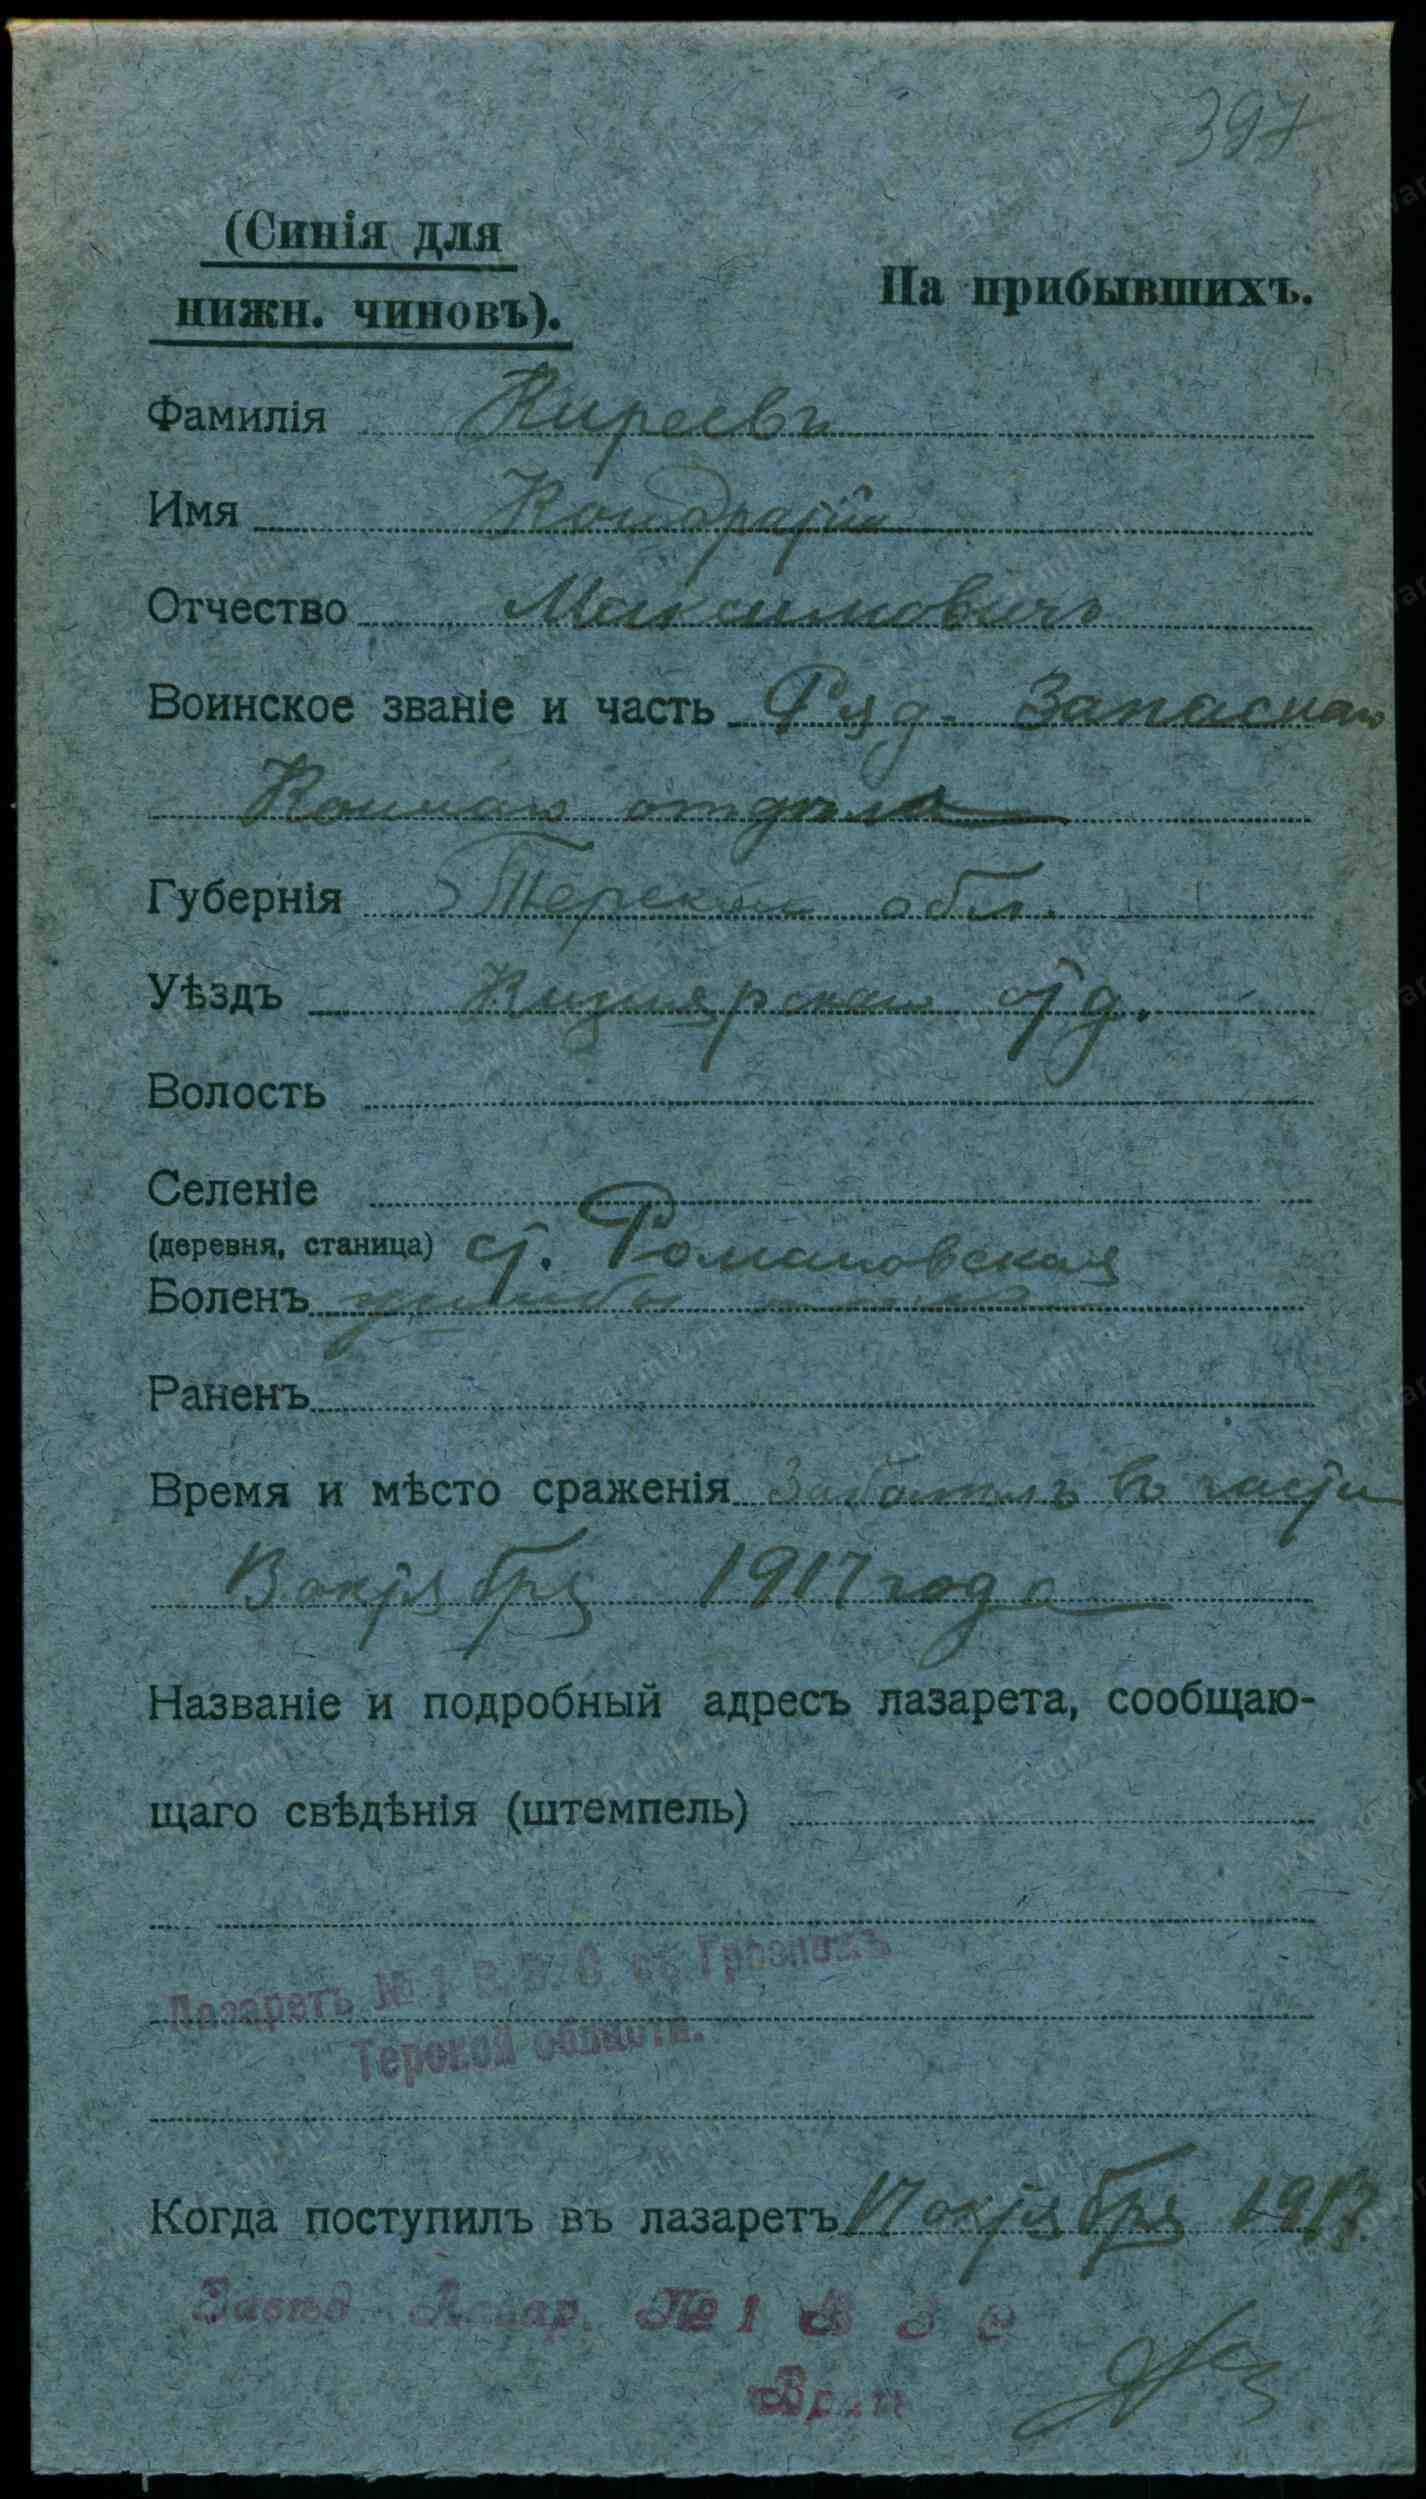 397
(Синія для
нижн. чиновъ).
На прибывшихъ.
Фамилія Киреевъ
Имя Кондратій
Отчество Максимовичъ
Воинское званіе и часть Ряд. Запаснаго
Коннаго отдѣла
Губернія Терской обл.
Уѣздъ Кизлярскаго отд.
Волость
Селеніе
(деревня, станица) ст. Романовская
Боленъ
Раненъ
Время и мѣсто сраженія Заболѣлъ въ части
В октября 1917 года
Названіе и подробный адресъ лазарета, сообщаю-
щаго свѣдѣнія (штемпель)
Лазаретъ № 1 В.З.С. въ Грозномъ
Терской области.
Когда поступилъ въ лазаретъ 17 октября 1917
Завѣд. Лазар. № 1 В З С
Врач